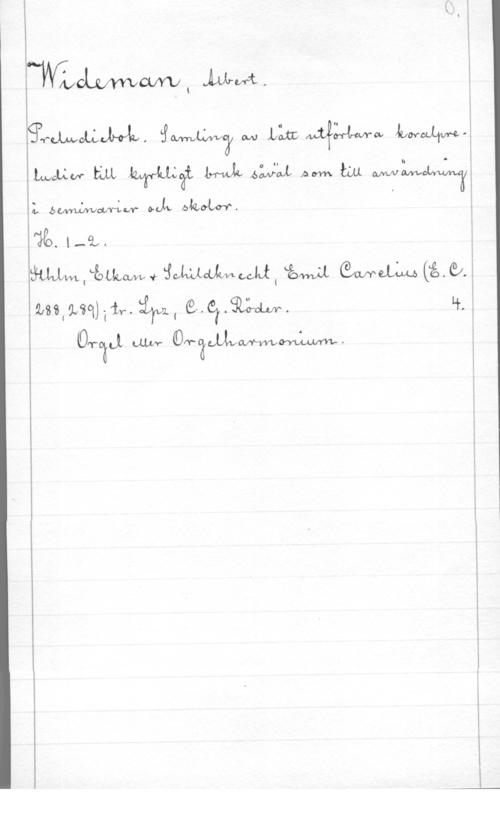 O.
Wideman, Albert.
Preludiebok. Samling av lätt utförbara koralpre-
ludier till kyrkligt bruk såväl som till användning
i seminarier och skolor.
H. 1-2.
Sthlm, Elkan & Schildknecht, Emil Carelius (E.C.
288, 289); tr. Lpz, C.G. Röder. 4.
Orgel eller Orgelharmonium.